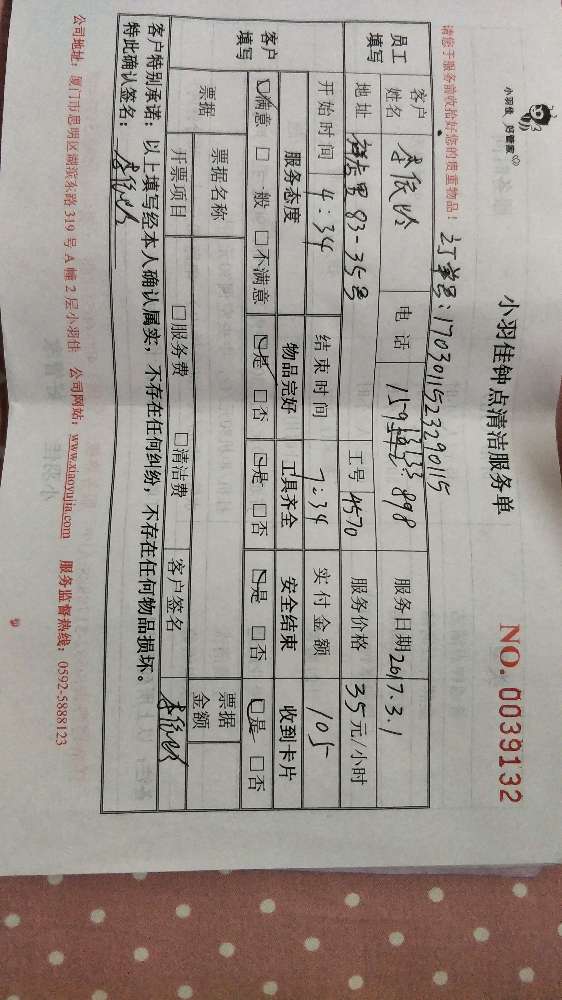 小羽佳 好管家
小羽佳钟点清洁服务单
NO. 0039132
请您于服务前收拾好您的贵重物品！
订单号：1703011523290115
员工填写
客户姓名 电话 159 898 服务日期 2017.3.1
地址 83-35号 工号 A570 服务价格 35元/小时
开始时间 4:34 结束时间 7:34 实付金额 105
客户填写
服务态度 物品完好 工具齐全 安全结束 收到卡片
☑满意 □一般 □不满意 ☑是 □否 ☑是 □否 ☑是 □否 ☑是 □否
票据 票据名称 票据金额
开票项目 □服务费 □清洁费 客户签名
客户特别承诺：以上填写经本人确认属实，不存在任何纠纷，不存在任何物品损坏。
特此确认签名：
公司地址：厦门市思明区湖滨东路 319 号 A 幢 2 层小羽佳 公司网站：www.xiaoyujia.com 服务监督热线：0592-5888123